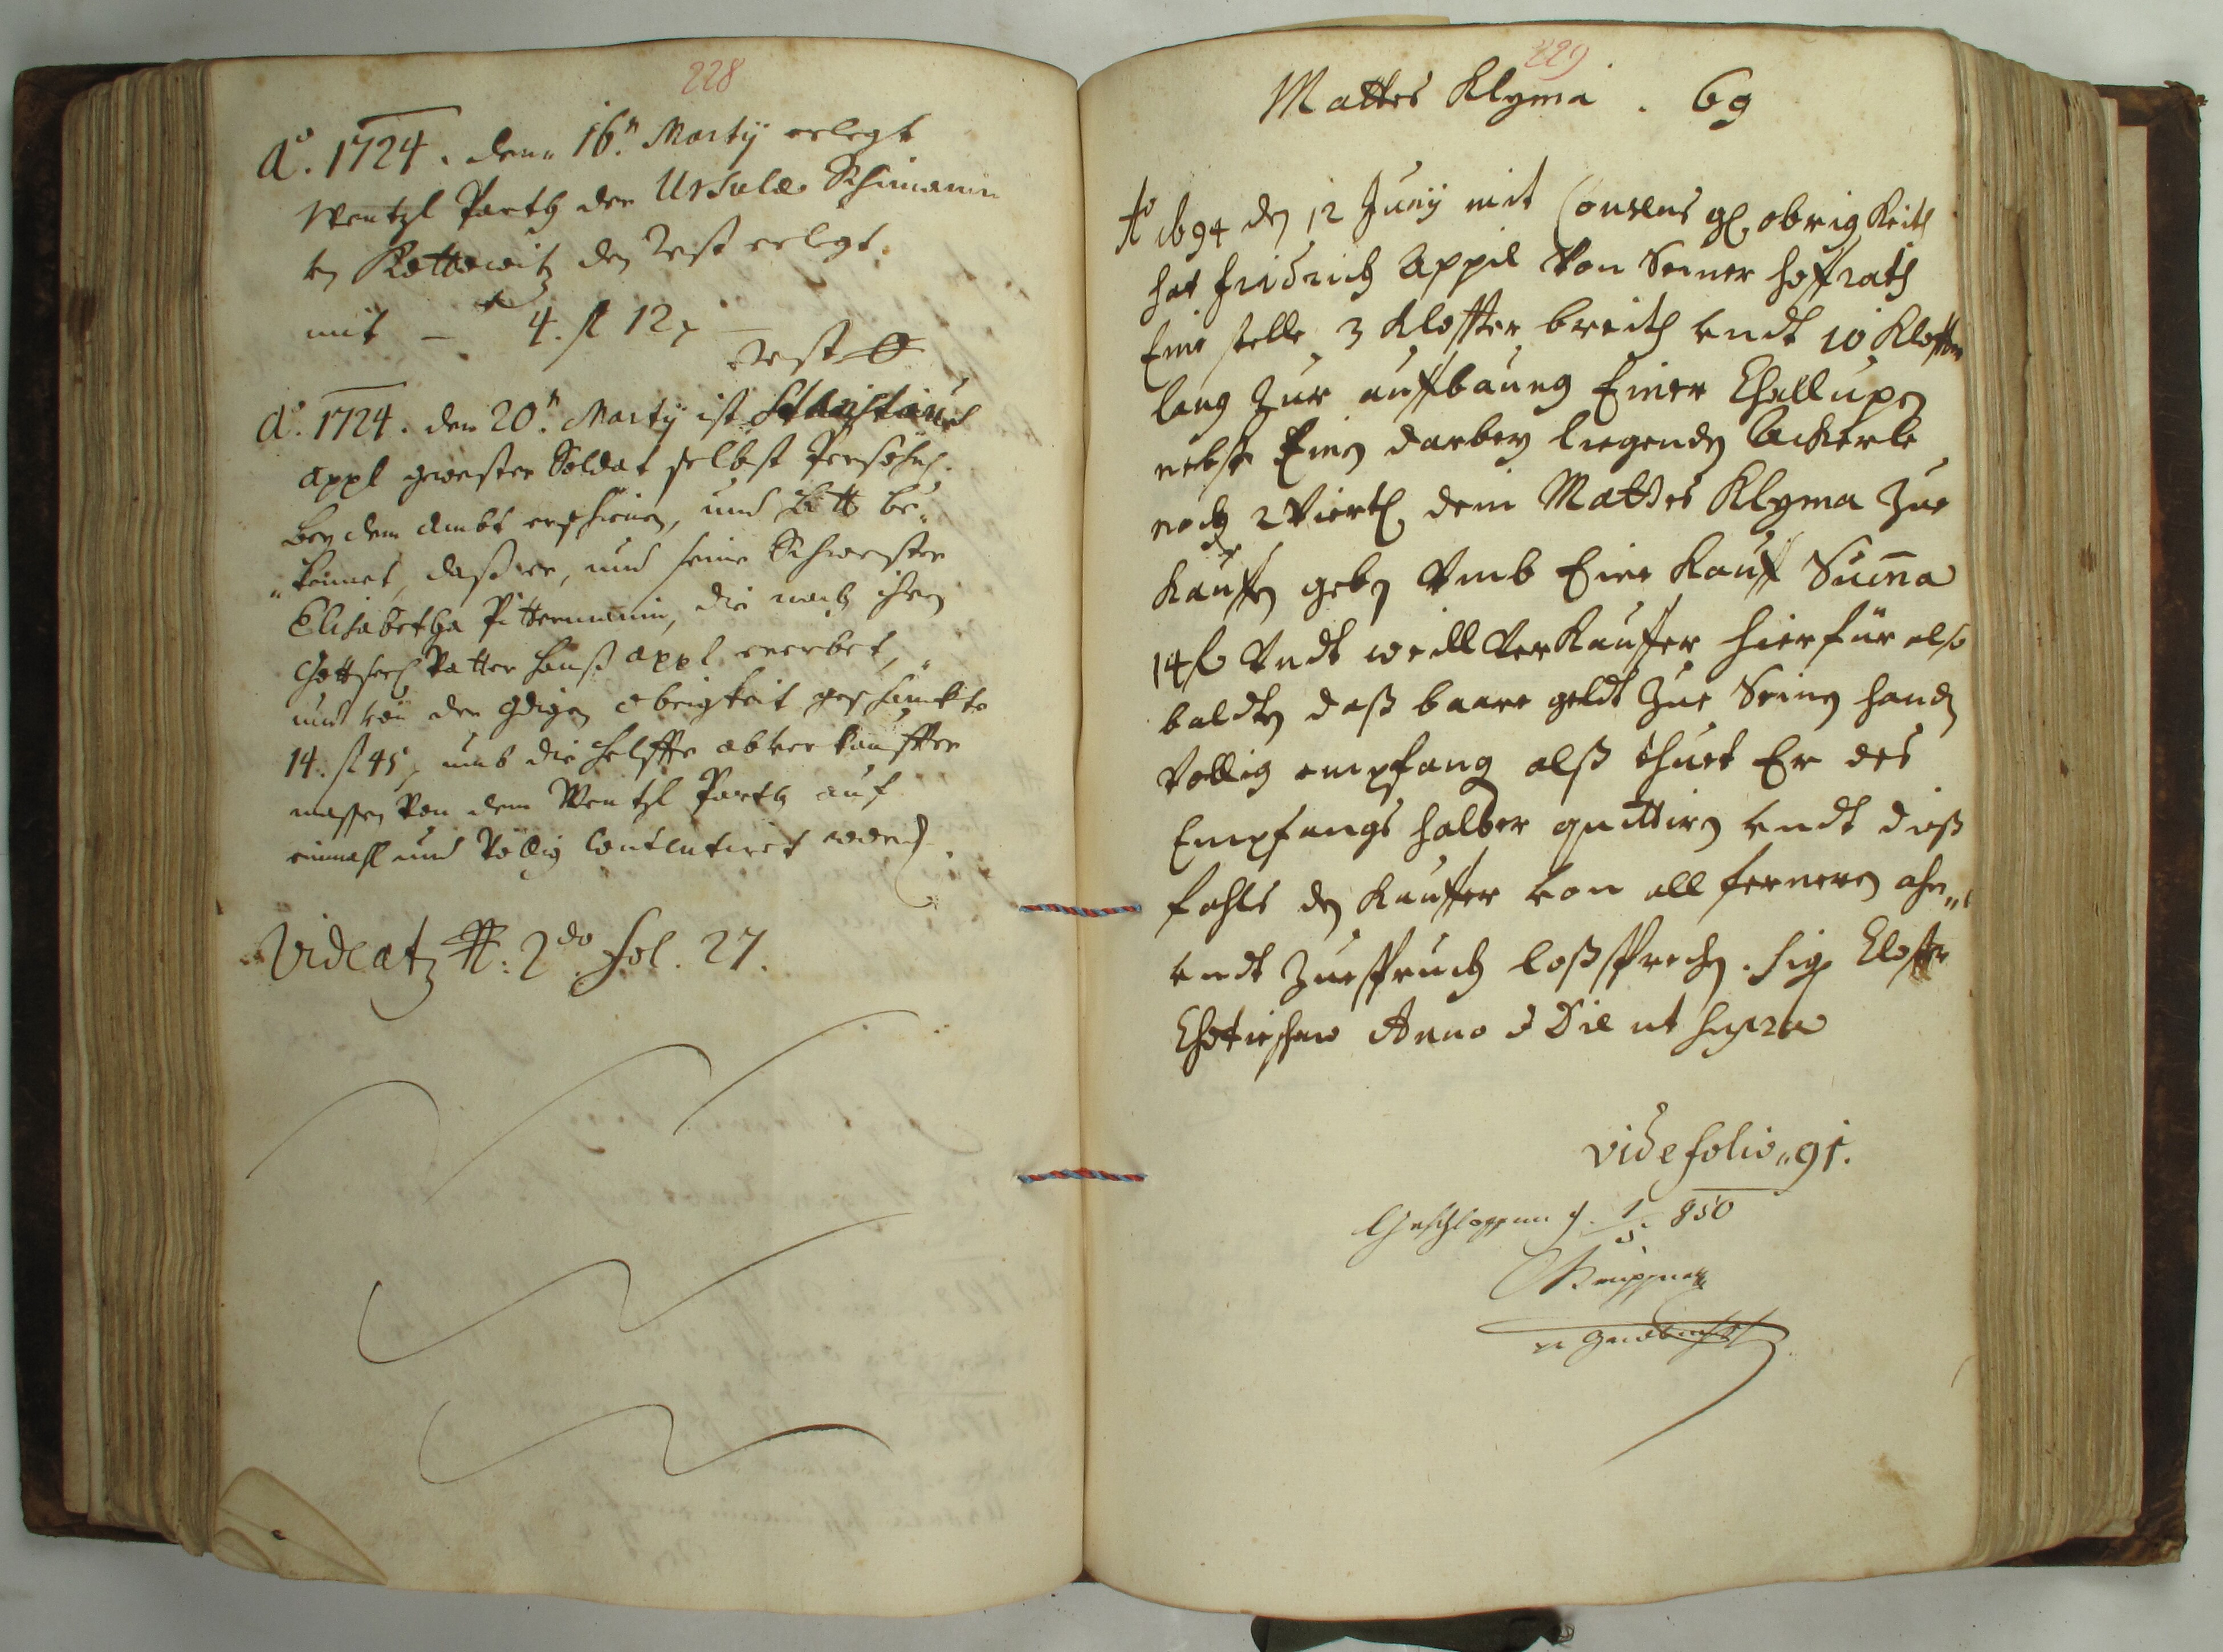 228
Ao. 1724. den 16n. Marty erlegt
Wentzl Parth der Ursula Schimanin
in Kottowitz den Rest erlegt
mit — 4. fl 12 x
Rest 0
Ao. 1724. den 20n. Marty ist
Appl gewester Soldat selbst Persöhnl.
bey dem Ambt erschienen, und hatt be„
„kennet, daß er, und seine Schwester
Elisabetha Pittermanin, die nach ihren
Gottseel Vatter Hanß Appl ererbet,
und von der Gdigen Obrigkeit geschänckte
14. fl 45 x umb die Helffte abverkauffter
massen von dem Wentzl Parth auf
einmahl und völlig Contentiret word
Videatz 2do fol. 27.
229
Mattes Klyma . 69
Ao 1694 den 12 Juny mit Consens gl. obrigkeith
hat Fridrich Appil Von Seiner hoffrath
Eine stelle 3 Klaffter breith undt 10 Klaffter
lang zur auffbauung Einer Challupen
nebst Einen darbey liegenden Ackerle
nach 2 Viertl dem Mattes Klyma zue
Kauffen geben Vmb Eine Kauff Suma
14 fl Vndt weill Verkauffer hierfür also
baldten daß baare geldt zue Seinen handen
Völlig empfang alß thuet Er des
Empfangs halber quittiren undt dieß
fahls den Kauffer von all ferneren ahn„
undt Zuespruch loßsprechen. Sig. Closter
Chotieschau Anno & Die ut supra
Vide folio „ 91.
Geschlossen 1/5 850